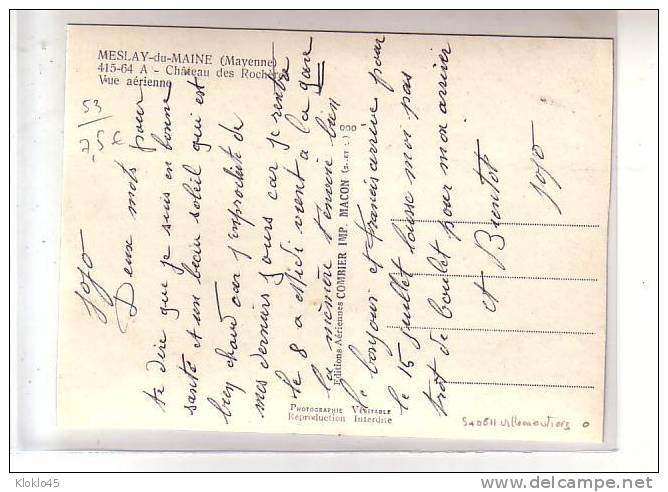 MESLAY-du-MAINE (Mayenne)
415-64 A - Château des Rochères
Vue aérienne
53
7,5 €
Jojo
Deux mots pour
te dire que je suis en bonne
santé et un beau soleil qui est
bien chaud car j'en profite de
mes derniers jours car je rentre
le 8 a Midi vient à la gare
la mémère t'envoie bien
le bonjour et Francis arrive pour
le 15 juillet laisse moi pas
trot de boulet pour mon arriver
et Bientot
Jojo
Editions Aériennes COMBIER IMP. MACON (S.-ET-L.)
PHOTOGRAPHIE VÉRITABLE
Reproduction Interdite
Kloklo45
www.delcampe.net